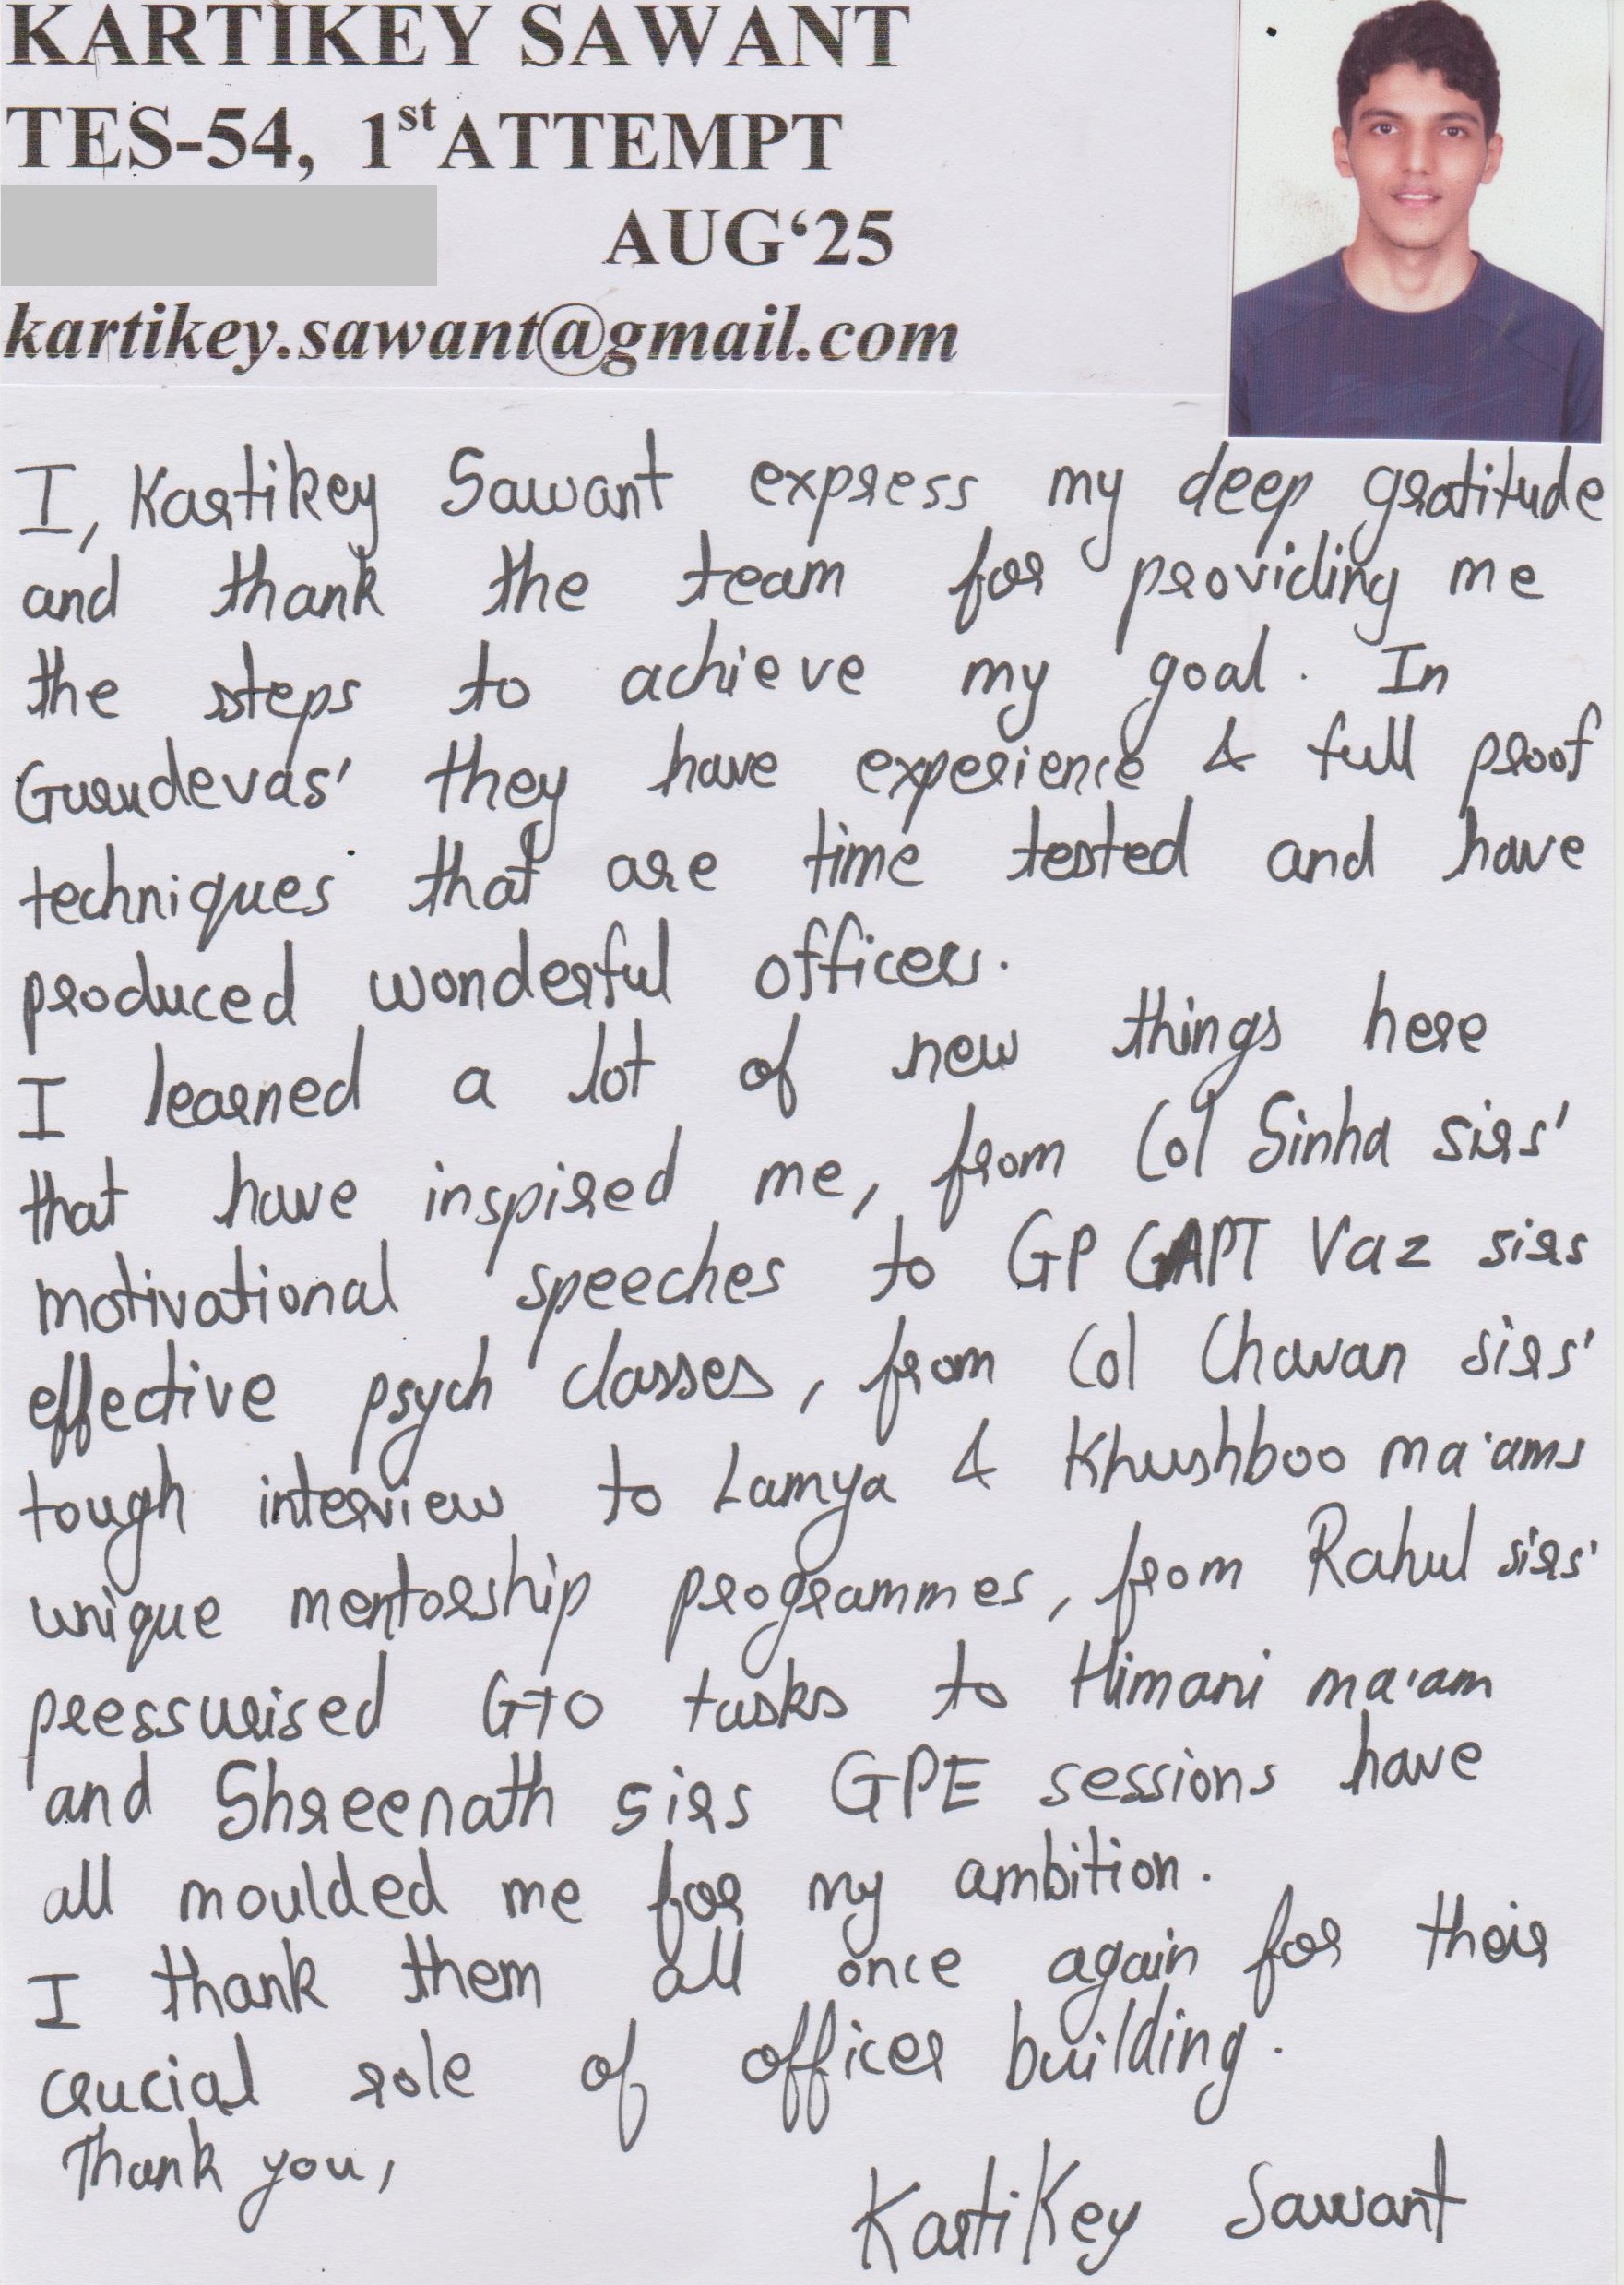 KARTIKEY SAWANT
TES-54, 1st ATTEMPT
AUG‘25
kartikey.sawant@gmail.com
I, Kartikey Sawant express my deep gratitude
and thank the team for providing me
the steps to achieve my goal. In
Gurudevas' they have experience & full proof
techniques that are time tested and have
produced wonderful officers.
I learned a lot of new things here
that have inspired me, from Col Sinha sirs'
motivational speeches to GP CAPT Vaz sirs
effective psych classes, from Col Chavan sirs'
tough interview to Lamya & Khushboo ma'ams
unique mentorship programmes, from Rahul sirs'
pressurised GTO tasks to Himani ma'am
and Shreenath sirs GPE sessions have
all moulded me for my ambition.
I thank them all once again for their
crucial role of officer building.
Thank you,
Kartikey Sawant